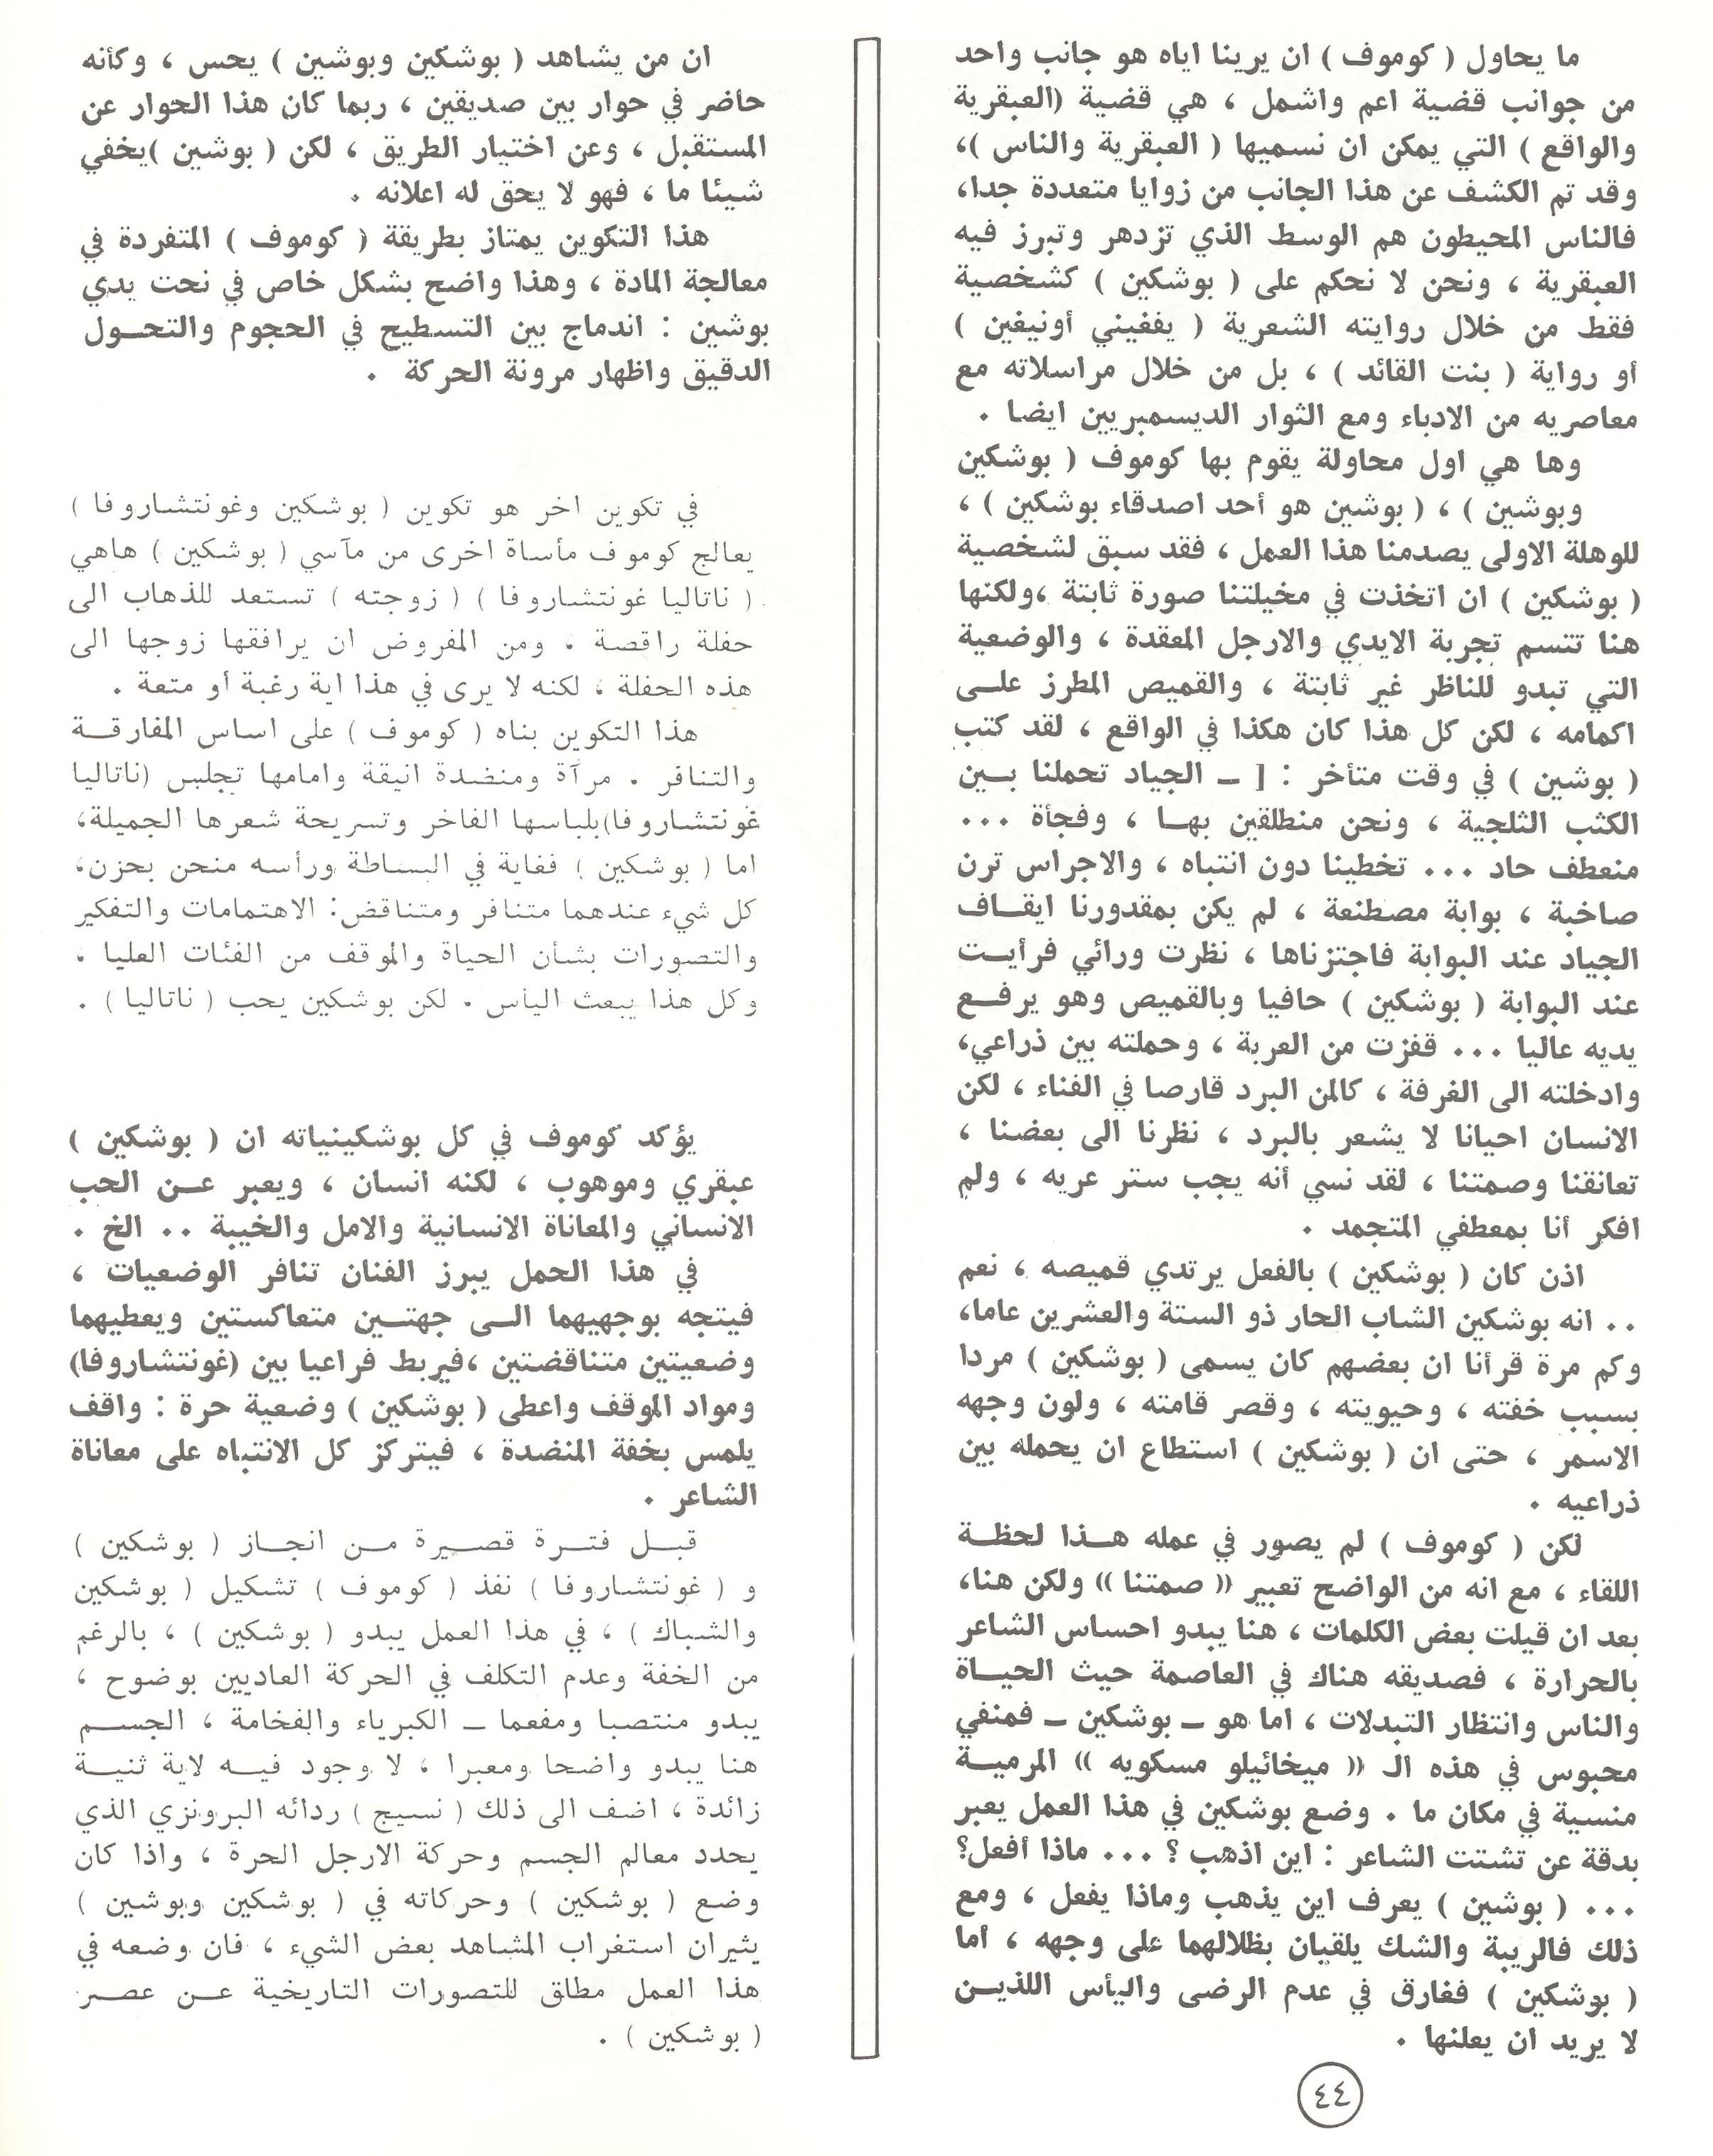 ما يحاول ( كوموف ) ان يرينا اياه هو جانب واحد
من جوانب قضية اعم واشمل ، هي قضية (العبقرية
والواقع ) التي يمكن ان نسميها ( العبقرية والناس )،
وقد تم الكشف عن هذا الجانب من زوايا متعددة جدا،
فالناس المحيطون هم الوسط الذي تزدهر وتبرز فيه
العبقرية ، ونحن لا نحكم على ( بوشكين ) كشخصية
فقط من خلال روايته الشعرية ( يفغيني أونيغين )
أو رواية ( بنت القائد ) ، بل من خلال مراسلاته مع
معاصريه من الادباء ومع الثوار الديسمبريين ايضا .
وها هي اول محاولة يقوم بها كوموف ( بوشكين
وبوشين ) ، ( بوشين هو أحد اصدقاء بوشكين ) ،
للوهلة الاولى يصدمنا هذا العمل ، فقد سبق لشخصية
( بوشكين ) ان اتخذت في مخيلتنا صورة ثابتة ،ولكنها
هنا تتسم تجربة الايدي والارجل المعقدة ، والوضعية
التي تبدو للناظر غير ثابتة ، والقميص المطرز علـى
اكمامه ، لكن كل هذا كان هكذا في الواقع ، لقد كتب
( بوشين ) في وقت متأخر : [ ـ الجياد تحملنا بـين
الكثب الثلجية ، ونحن منطلقين بهـا ، وفجأة ...
منعطف حاد ... تخطينا دون انتباه ، والاجراس ترن
صاخبة ، بوابة مصطنعة ، لم يكن بمقدورنا ايقـاف
الجياد عند البوابة فاجتزناها ، نظرت ورائي فرأيـت
عند البوابة ( بوشكين ) حافيا وبالقميص وهو يرفـع
يديه عاليا ... قفزت من العربة ، وحملته بين ذراعي،
وادخلته الى الغرفة ، كالمن البرد قارصا في الفناء ، لكن
الانسان احيانا لا يشعر بالبرد ، نظرنا الى بعضنا ،
تعانقنا وصمتنا ، لقد نسي أنه يجب ستر عريه ، ولم
افكر أنا بمعطفي المتجمد .
اذن كان ( بوشكين ) بالفعل يرتدي قميصه ، نعم
.. انه بوشكين الشاب الحار ذو الستة والعشرين عاما،
وكم مرة قرأنا ان بعضهم كان يسمى ( بوشكين ) مردا
بسبب خفته ، وحيويته ، وقصر قامته ، ولون وجهه
الاسمر ، حتى ان ( بوشكين ) استطاع ان يحمله بين
ذراعيه .
لكن ( كوموف ) لم يصور في عمله هـذا لحظـة
اللقاء ، مع انه من الواضح تعبير (( صمتنا )) ولكن هنا،
بعد ان قيلت بعض الكلمات ، هنا يبدو احساس الشاعر
بالحرارة ، فصديقه هناك في العاصمة حيث الحيـاة
والناس وانتظار التبدلات ، اما هو ـ بوشكين ـ فمنفي
محبوس في هذه الـ (( ميخائيلو مسكويه )) المرميـة
منسية في مكان ما . وضع بوشكين في هذا العمل يعبر
بدقة عن تشتت الشاعر : اين اذهب ؟ ... ماذا أفعل؟
... ( بوشين ) يعرف اين يذهب وماذا يفعل ، ومع
ذلك فالريبة والشك يلقيان بظلالهما على وجهه ، أما
( بوشكين ) ففارق في عدم الرضى واليأس اللذيـن
لا يريد ان يعلنها .
٤٤
ان من يشاهد ( بوشكين وبوشين ) يحس ، وكأنه
حاضر في حوار بين صديقين ، ربما كان هذا الحوار عن
المستقبل ، وعن اختيار الطريق ، لكن ( بوشين )يخفي
شيئا ما ، فهو لا يحق له اعلانه .
هذا التكوين يمتاز بطريقة ( كوموف ) المتفردة في
معالجة المادة ، وهذا واضح بشكل خاص في نحت يدي
بوشين : اندماج بين التسطيح في الحجوم والتحـول
الدقيق واظهار مرونة الحركة .
في تكوين اخر هو تكوين ( بوشكين وغونتشاروفا )
يعالج كوموف مأساة اخرى من مآسي ( بوشكين ) هاهي
( ناتاليا غونتشاروفا ) ( زوجته ) تستعد للذهاب الى
حفلة راقصة . ومن المفروض ان يرافقها زوجها الى
هذه الحفلة ، لكنه لا يرى في هذا اية رغبة أو متعة .
هذا التكوين بناه ( كوموف ) على اساس المفارقـة
والتنافر . مرآة ومنضدة انيقة وامامها تجلس (ناتاليا
غونتشاروفا)بلباسها الفاخر وتسريحة شعرها الجميلة،
اما ( بوشكين ) ففاية في البساطة ورأسه منحن بحزن،
كل شيء عندهما متنافر ومتناقض: الاهتمامات والتفكير
والتصورات بشأن الحياة والموقف من الفئات العليا ،
وكل هذا يبعث اليأس . لكن بوشكين يحب ( ناتاليا ) .
يؤكد كوموف في كل بوشكينياته ان ( بوشكين )
عبقري وموهوب ، لكنه انسان ، ويعبر عـن الحب
الانساني والمعاناة الانسانية والامل والخيبة .. الخ .
في هذا الحمل يبرز الفنان تنافر الوضعيات ،
فيتجه بوجهيهما الـى جهتـين متعاكستين ويعطيهما
وضعيتين متناقضتين ،فيربط فراعيا بين (غونتشاروفا)
ومواد الموقف واعطى ( بوشكين ) وضعية حرة : واقف
يلمس بخفة المنضدة ، فيتركز كل الانتباه على معاناة
الشاعر .
قبـل فتـرة قصـيرة مـن انجـاز ( بوشكين )
و ( غونتشاروفا ) نفذ ( كوموف ) تشكيل ( بوشكين
والشباك ) ، في هذا العمل يبدو ( بوشكين ) ، بالرغم
من الخفة وعدم التكلف في الحركة العاديين بوضوح ،
يبدو منتصبا ومفعما ـ الكبرياء والفخامة ، الجسـم
هنا يبدو واضحا ومعبرا ، لا وجود فيـه لاية ثنيـة
زائدة ، اضف الى ذلك ( نسيج ) ردائه البرونزي الذي
يحدد معالم الجسم وحركة الارجل الحرة ، واذا كان
وضع ( بوشكين ) وحركاته في ( بوشكين وبوشين )
يثيران استفراب المشاهد بعض الشيء ، فان وضعه في
هذا العمل مطلق للتصورات التاريخية عـن عصـر
( بوشكين ) .